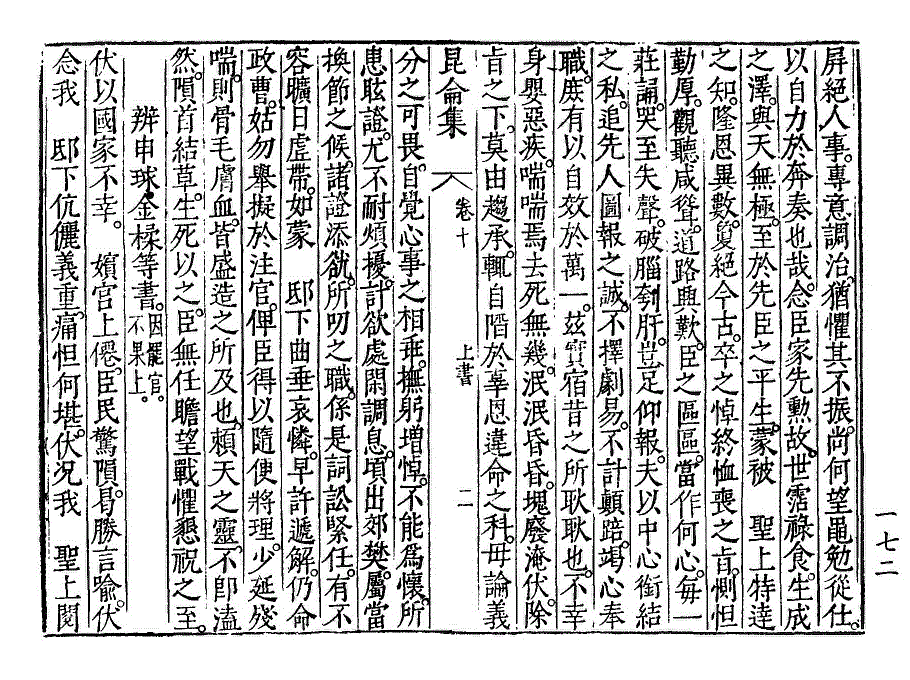 屛絕人事。專意調治。猶懼其不振。尙何望黽勉從仕。
以自力於奔奏也哉。念臣家先勳故。世霑祿食。生成
之澤。與天無極。至於先臣之平生。蒙被 聖上特達
之知。隆恩異數。夐絕今古。卒之悼終恤喪之旨。惻怛
勤厚。觀聽咸聳。道路興歎。臣之區區。當作何心。每一
莊誦。哭至失聲。破腦刳肝。豈足仰報。夫以中心銜結
之私。追先人圖報之誠。不擇劇易。不計顚踣。竭心奉
職。庶有以自效於萬一。玆實宿昔之所耿耿也。不幸
身嬰惡疾。喘喘焉去死無幾。泯泯昏昏。塊廢淹伏。除
旨之下。莫由趨承。輒自陷於辜恩違命之科。毋論義
昆侖集 卷十 上書 二
分之可畏。自覺心事之相乖。撫躬增悼。不能爲懷。所
患眩證。尤不耐煩擾。計欲處閑調息。頃出郊樊。屬當
換節之候。諸證添欲。所叨之職。係是詞訟緊任。有不
容曠日虛帶。如蒙 邸下曲垂哀憐。早許遞解。仍命
政曹。姑勿擧擬於注官。俾臣得以隨便將理。少延殘
喘。則骨毛膚血。皆盛造之所及也。賴天之靈。不卽溘
然。隕首結草。生死以之。臣無任瞻望戰懼懇祝之至。
辨申球金楺等書。因罷官。不果上。
伏以國家不幸。 嬪宮上僊。臣民驚隕。曷勝言喩。伏
念我 邸下伉儷義重。痛怛何堪。伏況我 聖上閱
一七二